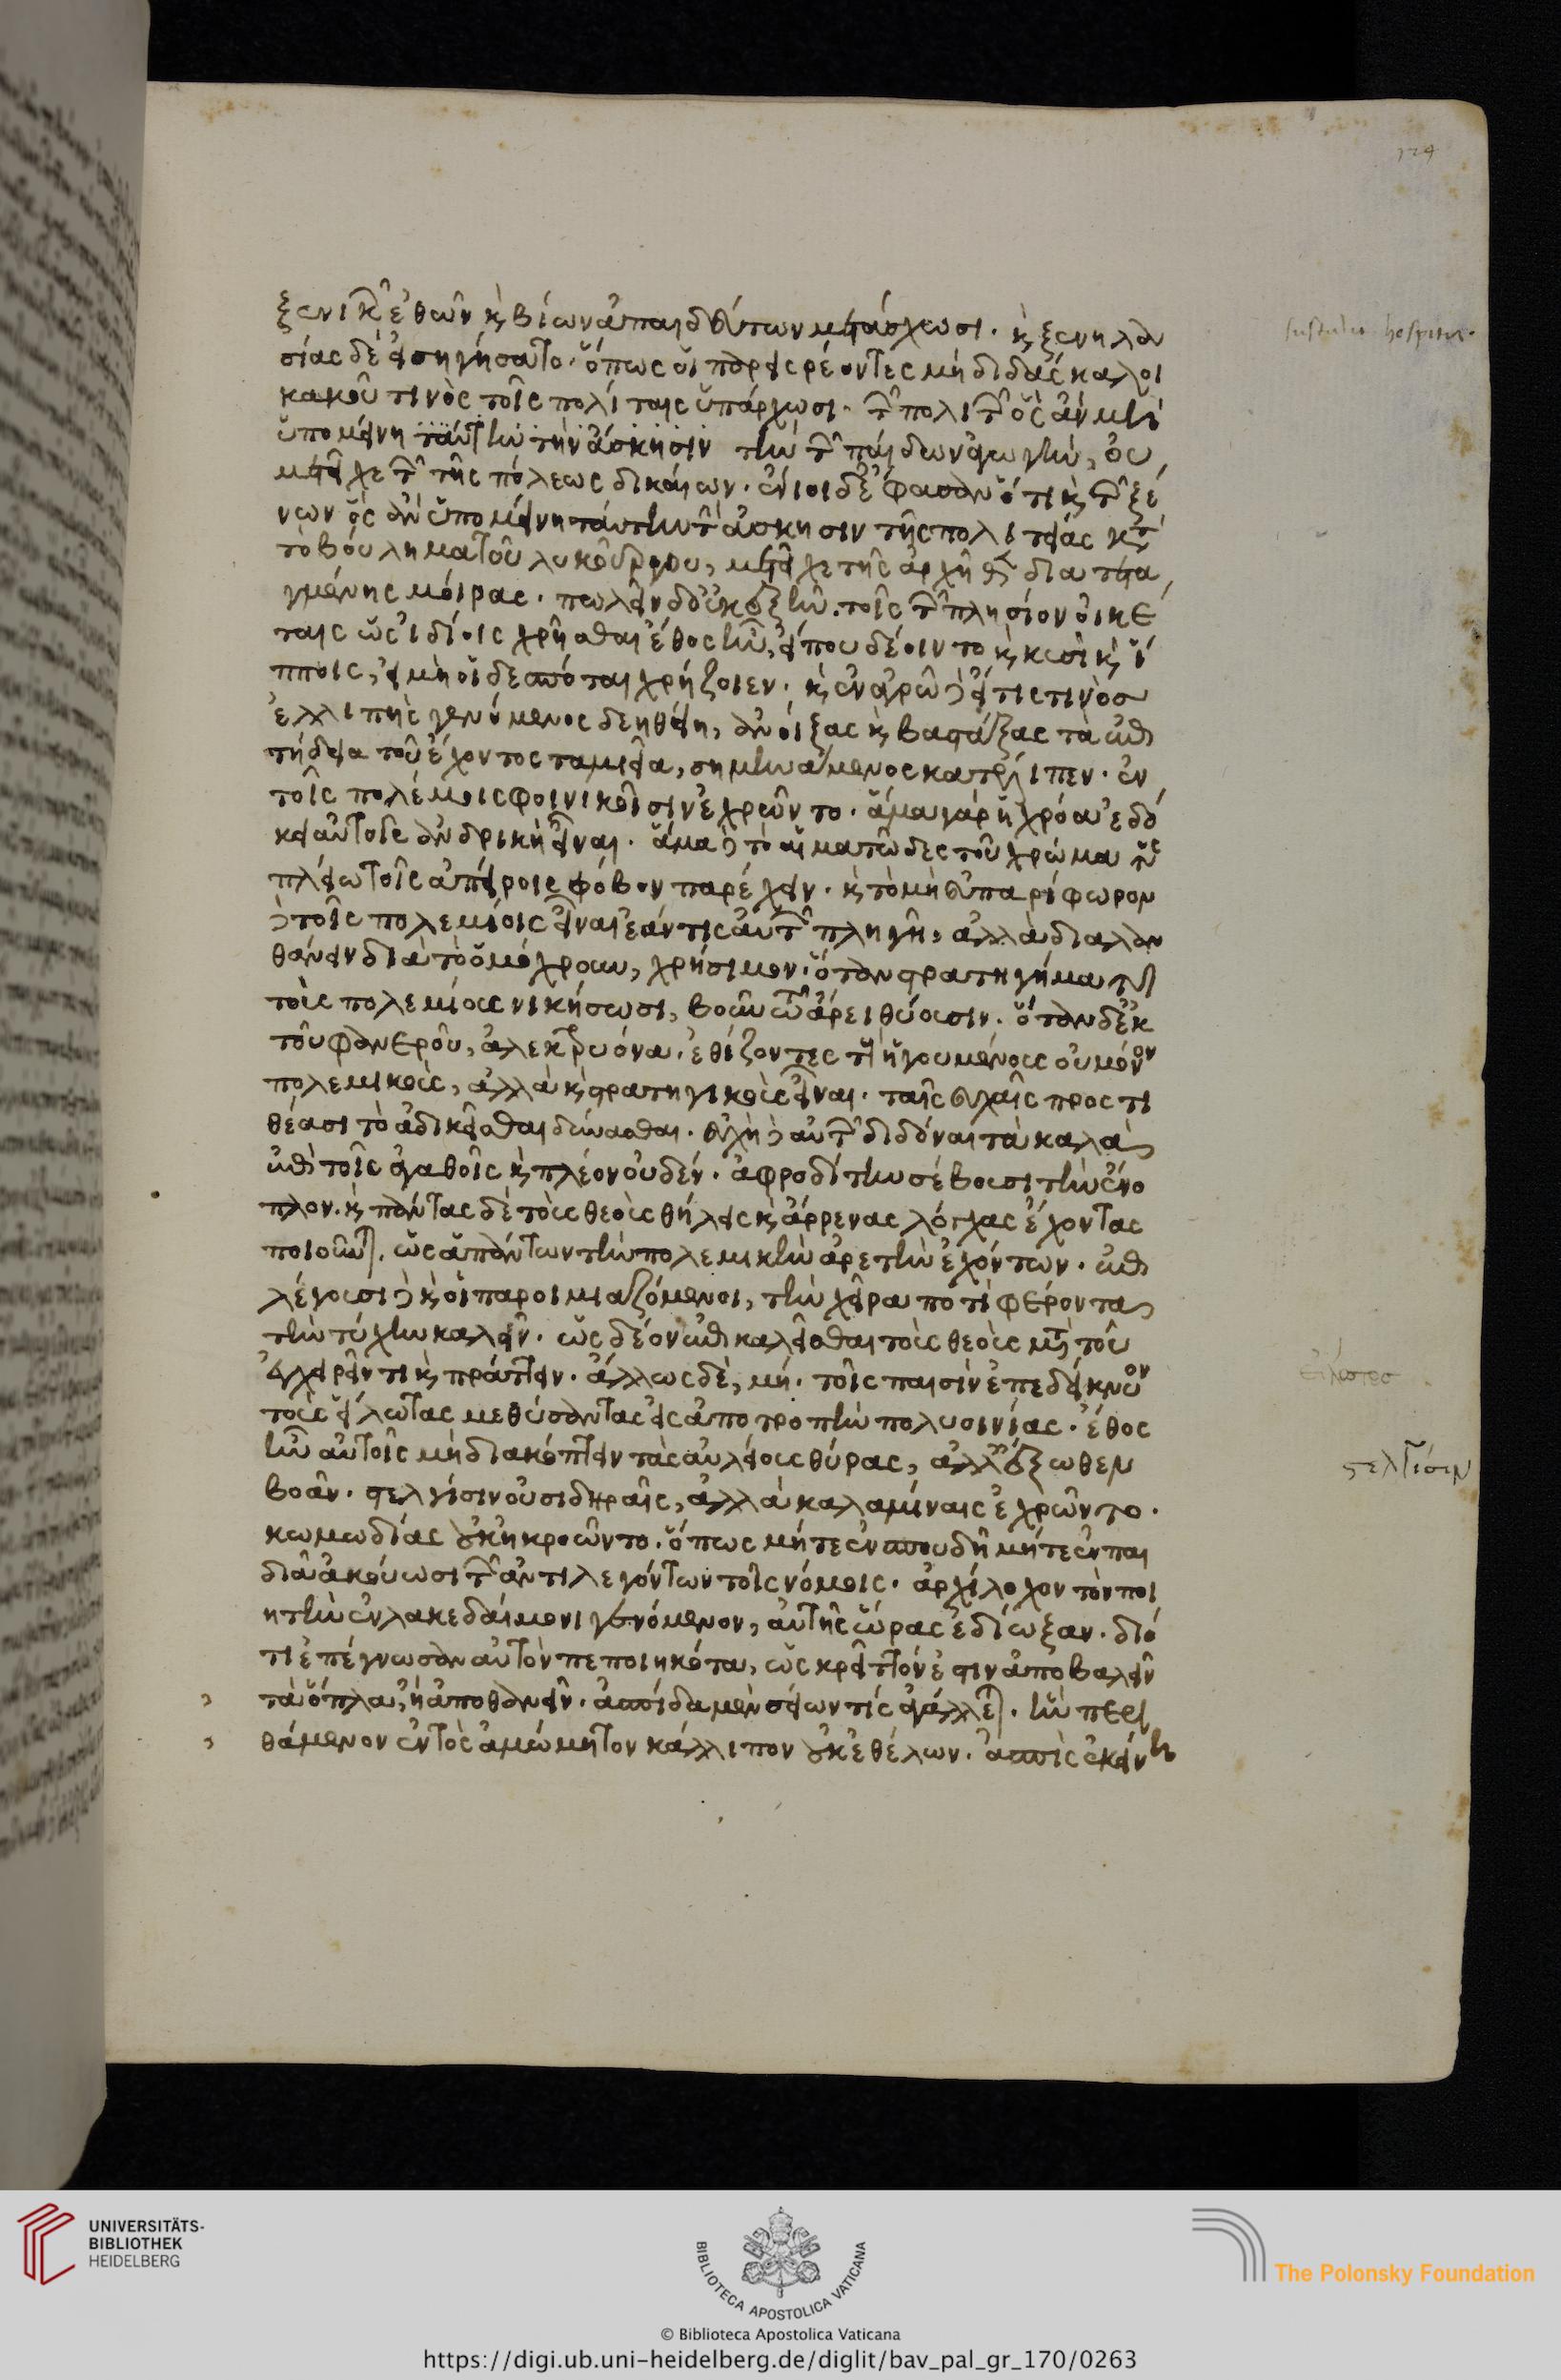 ξενικῶν ἐθῶν καὶ βίων ἀπαιδεύτων μετάσχωσι. καὶ ξενηλα
σίας δὲ εἰσηγήσατο. ὅπως οἱ παρεισρέοντες μὴ διδάσκαλοι
κακοῦ τινὸς τοῖς πολίταις ὑπάρχωσι. τῶν πολιτῶν ὃς ἂν μὴ
ὑπομείνη ταύτην τὴν ἄσκησιν τὴν τῶν παίδων ἀγωγὴν, οὐ
μετεῖχε τῶν τῆς πόλεως δικαίων. ἔνιοι δὲ ἔφασαν ὅτι καὶ τῶν ξέ
νων ὃς ἂν ὑπομείνη ταύτην τὴν ἄσκησιν τῆς πολιτείας κατὰ
τὸ βούλημα τοῦ λυκούργου, μετεῖχε τῆς ἀρχῆθεν διατεta
γμένης μοίρας. πωλεῖν δ' οὐκ ἐξῆν. τοῖς τῶν πλησίον οἰκέ
ταις ὡς ἰδίοις χρῆσθαι ἔθος ἦν, εἴπου δέοιντο καὶ κυσὶ καὶ ἵ
πποις, εἰ μὴ οἱ δεσπόται χρήζοιεν. καὶ ἐν ἀγρῶ δὲ εἴ τις τινὸσ
ἐλλιπὴς γενόμενος δεηθείη, ἀνοίξας καὶ βαστάξας τὰ ἐπι
τήδεια τοῦ ἔχοντος ταμιεῖα, σημηνάμενος κατέλιπεν. ἐν
τοῖς πολέμοις φοινικοῖσιν ἐχρῶντο. ἅμα γὰρ ἡ χρόα ἐδό
κει αὐτοῖς ἀνδρικὴ εἶναι. ἅμα δὲ τὸ αἱματῶδες τοῦ χρώματος
πλείω τοῖς ἀπείροις φόβον παρέχειν. καὶ τὸ μὴ εὐπαρίφωρον
δὲ τοῖς πολεμίοις εἶναι ἐάν τις αὐτῶν πληγῆ, ἀλλὰ διαλαν
θάνειν διὰ τὸ ὁμόχρουν, χρήσιμον. ὅταν στρατηγήματι
τοὺς πολεμίους νικήσωσι, βοῦν τῷ ἄρει θύουσιν. ὅταν δὲ ἐκ
τοῦ φανεροῦ, ἀλεκτρυόνα. ἐθίζοντες τοὺς ἡγουμένους οὐ μόνον
πολεμικοὺς, ἀλλὰ καὶ στρατηγικοὺς εἶναι. ταῖς εὐχαῖς προστι
θέασι τὸ ἀδικεῖσθαι δύνασθαι. εὐχὴ δὲ αὐτῶν διδόναι τὰ καλὰ
ἐπὶ τοῖς ἀγαθοῖς καὶ πλέον οὐδέν. ἀφροδίτην σέβουσι τὴν ἔνο
πλον. καὶ πάντας δὲ τοὺς θεοὺς θήλεις καὶ ἄρρενας λόγχας ἔχοντας
ποιοῦνται. ὡς ἁπάντων τὴν πολεμικὴν ἀρετὴν ἐχόντων. ἐπι
λέγουσι δὲ καὶ οἱ παροιμιαζόμενοι, τὴν χεῖρα ποτιφέροντας
τὴν τύχην καλεῖν. ὡς δέον ἐπικαλεῖσθαι τοὺς θεοὺς μετὰ τοῦ
ἐγχειρεῖν τι καὶ πράττειν. ἄλλως δὲ, μή. τοῖς παισὶν ἐπεδείκνυον
τοὺς εἵλωτας μεθύσαντας εἰς ἀποτροπὴν πολυοινίας. ἔθος
ἦν αὐτοῖς μὴ δὲ κόπτειν τὰς αὐλείους θύρας, ἀλλ' ἔξωθεν
βοᾶν. στελγίσιν οὐ σιδηραῖς, ἀλλὰ καλαμίναις ἐχρῶντο.
κωμωδίας οὐκ ἠκροῶντο. ὅπως μήτε ἐν σπουδῆ μήτε ἐν παι
διᾶ ἀκούωσι τῶν ἀντιλεγόντων τοῖς νόμοις. ἀρχίλοχον τὸν ποι
ητὴν ἐν λακεδαίμονι γενόμενον, αὐτῆς ὥρας ἐδίωξαν. διό
τι ἐπέγνωσαν αὐτὸν πεποιηκότα, ὡς κρεῖττόν ἐστιν ἀποβαλεῖν
τὰ ὅπλα, ἢ ἀποθανεῖν. ἀσπίδα μὲν σαΐων τίς ἀγάλλεται. ἣν περὶ
θάμνον ἔντος ἀμώμητον κάλλιπον οὐκ ἐθέλων. ἀσπὶς ἐκείνη
hospitu
εἵλωτεσ
στελγίσιν
UNIVERSITÄTS-
BIBLIOTHEK
HEIDELBERG
BIBLIOTECA APOSTOLICA VATICANA
The Polonsky Foundation
© Biblioteca Apostolica Vaticana
https://digi.ub.uni-heidelberg.de/diglit/bav_pal_gr_170/0263